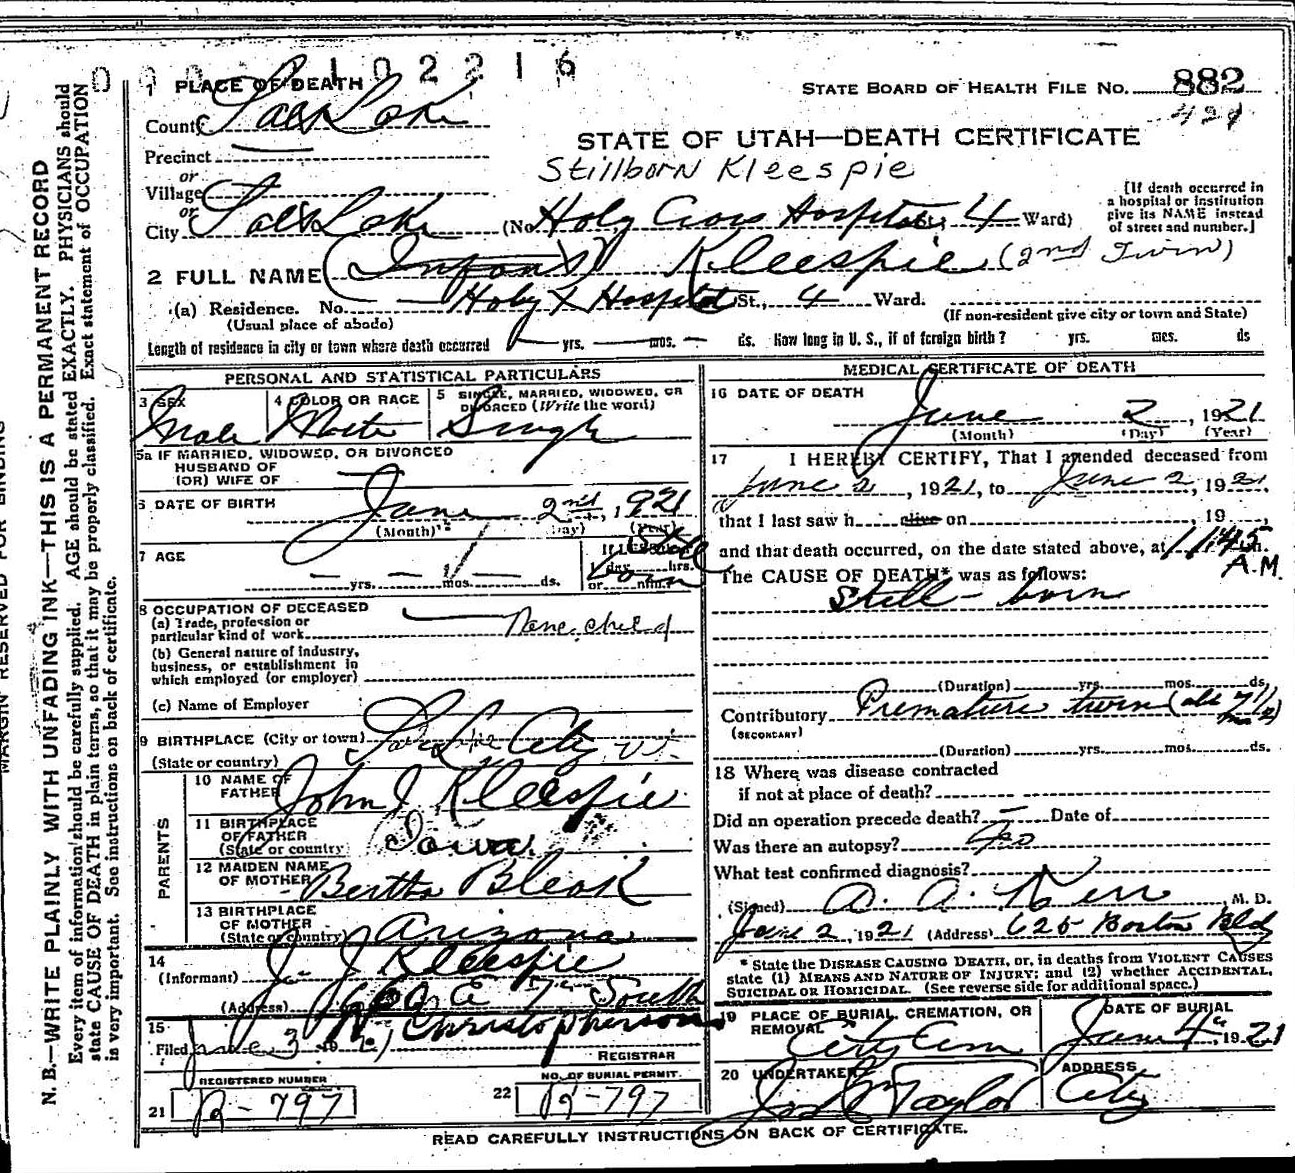 0 0 0 1 0 2 2 1 6
1 PLACE OF DEATH
STATE BOARD OF HEALTH FILE NO. 882
County Salt Lake
429
STATE OF UTAH—DEATH CERTIFICATE
Precinct
Stillborn Kleespie
or
Village
or
City Salt Lake (No. Holy Cross Hospital St., 4 Ward)
[If death occurred in
a hospital or institution
give its NAME instead
of street and number.]
2 FULL NAME (Infant) Kleespie (2nd Twin)
(a) Residence. No. Holy X Hospital St., 4 Ward.
(Usual place of abode)
(If non-resident give city or town and State)
Length of residence in city or town where death occurred yrs. mos. ds. How long in U. S., if of foreign birth? yrs. mos. ds
PERSONAL AND STATISTICAL PARTICULARS
3 SEX
Male
4 COLOR OR RACE
White
5 SINGLE, MARRIED, WIDOWED, OR
DIVORCED (Write the word)
Single
5a IF MARRIED, WIDOWED, OR DIVORCED
HUSBAND OF
(OR) WIFE OF
6 DATE OF BIRTH
June 2nd, 1921
(Month) (Day) (Year)
7 AGE
yrs. mos. ds.
If LESS than
day hrs.
or min.
Still
born
8 OCCUPATION OF DECEASED
(a) Trade, profession or
particular kind of work None. child
(b) General nature of industry,
business, or establishment in
which employed (or employer)
(c) Name of Employer
9 BIRTHPLACE (City or town) Salt Lake City Ut.
(State or country)
PARENTS
10 NAME OF
FATHER John J Kleespie
11 BIRTHPLACE
OF FATHER
(State or country) Iowa
12 MAIDEN NAME
OF MOTHER Bertha Bleak
13 BIRTHPLACE
OF MOTHER
(State or country) Arizona
14
(Informant) J. J Kleespie
(Address) E 7th South
15
Filed June 3 19 Christopherson
REGISTRAR
REGISTERED NUMBER
21 R-797
NO. OF BURIAL PERMIT.
22 R-797
MEDICAL CERTIFICATE OF DEATH
16 DATE OF DEATH
June 2, 1921
(Month) (Day) (Year)
17 I HEREBY CERTIFY, That I attended deceased from
June 2, 1921, to June 2, 1921
that I last saw h alive on , 19 ,
and that death occurred, on the date stated above, at 11:45 m.
A.M.
The CAUSE OF DEATH* was as follows:
Still-born
(Duration) yrs. mos. ds.
Contributory Premature twin (abt 7½
mos)
(SECONDARY)
(Duration) yrs. mos. ds.
18 Where was disease contracted
if not at place of death?
Did an operation precede death? — Date of
Was there an autopsy? No
What test confirmed diagnosis?
(Signed) A. A. Kerr M. D.
June 2, 1921 (Address) 625 Boston Bldg
* State the DISEASE CAUSING DEATH, or, in deaths from VIOLENT CAUSES
state (1) MEANS AND NATURE OF INJURY; and (2) whether ACCIDENTAL,
SUICIDAL OR HOMICIDAL. (See reverse side for additional space.)
19 PLACE OF BURIAL, CREMATION, OR
REMOVAL
City Cem
DATE OF BURIAL
June 4th, 1921
20 UNDERTAKER
Jos Wm Taylor
ADDRESS
City
READ CAREFULLY INSTRUCTIONS ON BACK OF CERTIFICATE.
MARGIN RESERVED FOR BINDING
N. B.—WRITE PLAINLY WITH UNFADING INK—THIS IS A PERMANENT RECORD
Every item of information should be carefully supplied. AGE should be stated EXACTLY. PHYSICIANS should
state CAUSE OF DEATH in plain terms, so that it may be properly classified. Exact statement of OCCUPATION
is very important. See instructions on back of certificate.